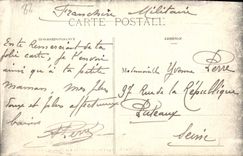 Franchise Militaire
CARTE POSTALE
CORRESPONDANCE
ADRESSE
En te remerciant de ta
jolie carte, je t'envoi
ainsi qu'à ta petite
maman, mes plus
doux et plus affectueux
baisers
Mademoiselle Yvonne Perre
97 Rue de la République
Puteaux
Seine